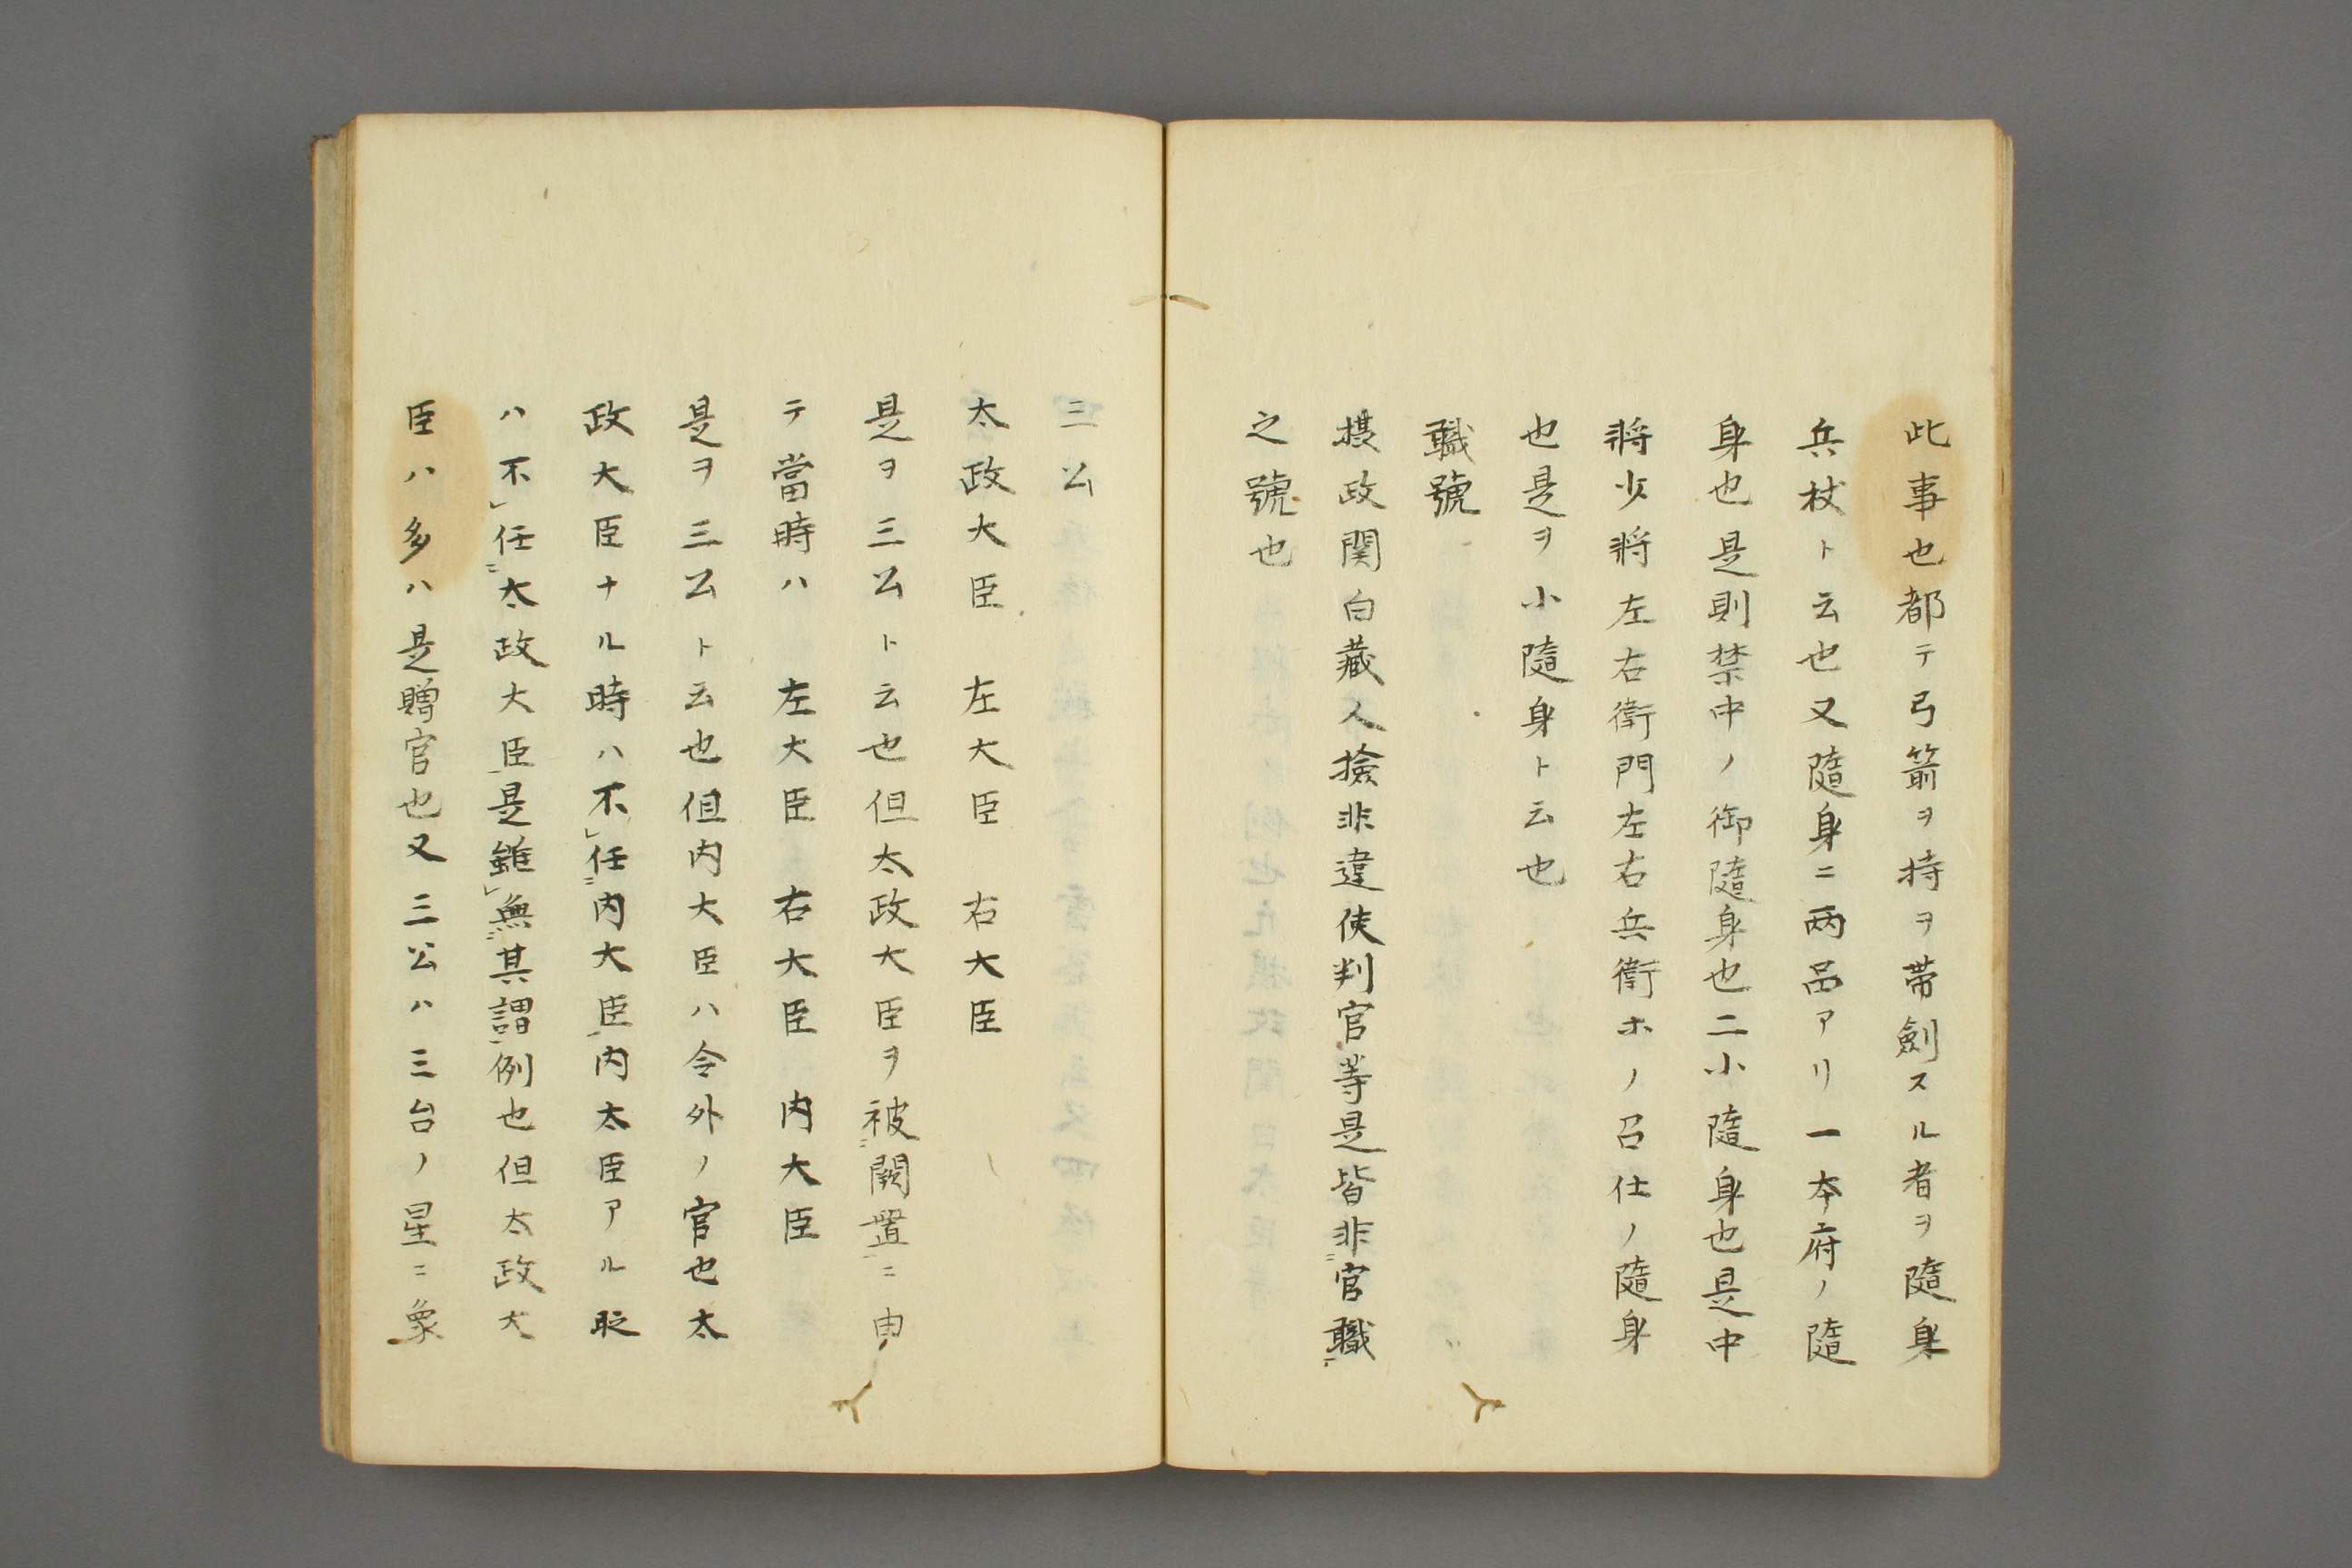 此事也都テ弓箭ヲ持ヲ帯劍スル者ヲ隨身
兵杖ト云也又隨身ニ両品アリ一本府ノ隨
身也是則禁中ノ御隨身也二小隨身也是中
將少將左右衛門左右兵衛ホノ召仕ノ隨身
也是ヲ小隨身ト云也
職號
摂政関白藏人撿非違使判官等是皆非ニ官職一
之號也
三公
太政大臣　左大臣　右大臣
是ヲ三公ト云也但太政大臣ヲ被ニ闕置一ニ由
テ當時ハ　左大臣　右大臣　内大臣
是ヲ三公ト云也但内大臣ハ令外ノ官也太
政大臣ナル時ハ不レ任ニ内大臣一内太臣アル时
ハ不レ任ニ太政大臣一是雖レ無ニ其謂一例也但太政大
臣ハ多ハ是贈官也又三公ハ三台ノ星ニ象